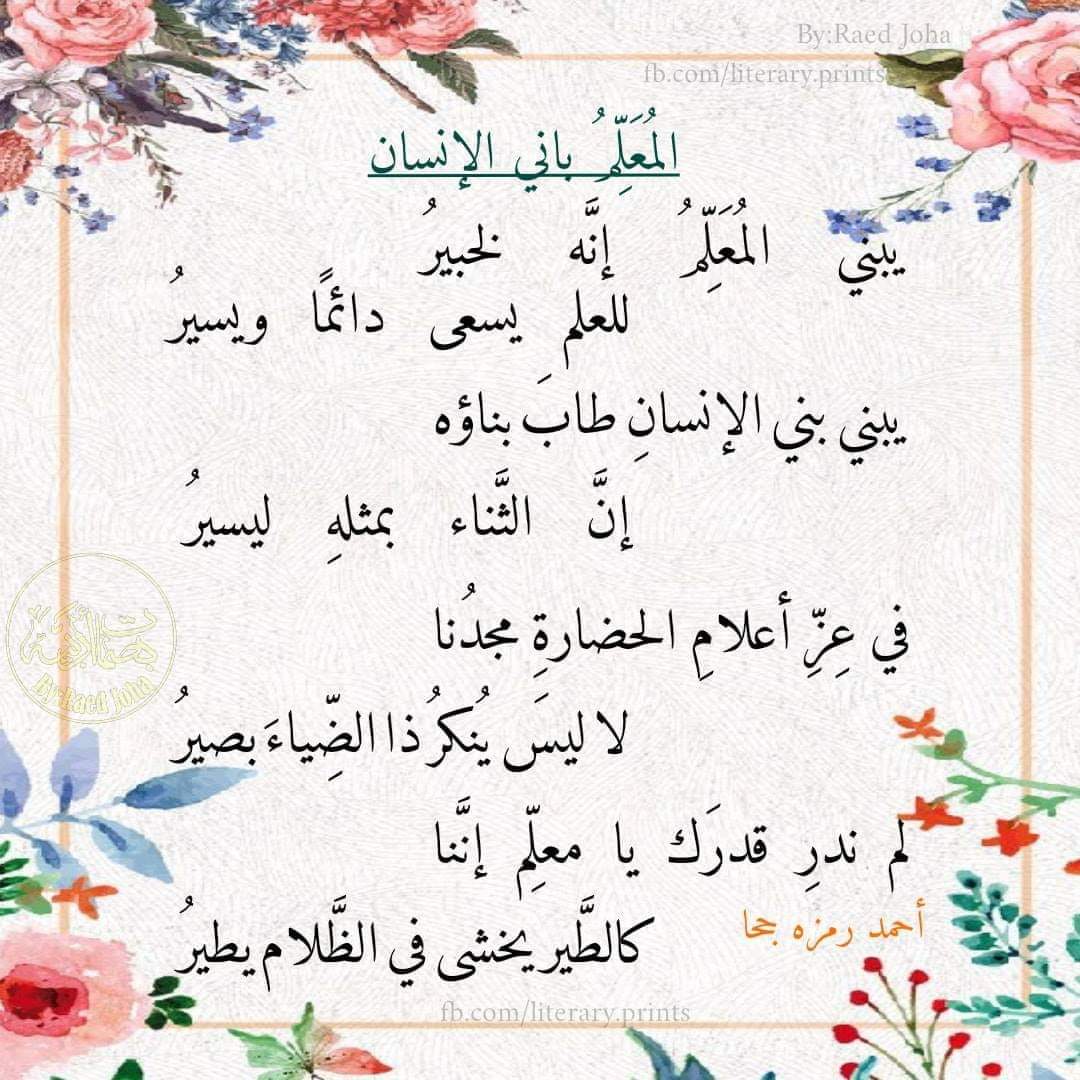 By:Raed Joha
fb.com/literary.prints
المُعَلِّمُ باني الإنسان
يبني المُعَلِّمُ إنَّه لخبيرُ
للعلم يسعى دائمًا ويسيرُ
يبني بني الإنسانِ طابَ بناؤه
إنَّ الثَّناء بمثلهِ ليسيرُ
في عِزِّ أعلامِ الحضارةِ مجدُنا
لا ليسَ يُنكرُ ذا الضِّياءَ بصيرُ
لم ندرِ قدرَك يا معلِّم إنَّنا
كالطَّير يخشى في الظَّلام يطيرُ
أحمد رمزه جحا
بصمات أدبية
By:Raed Joha
fb.com/literary.prints